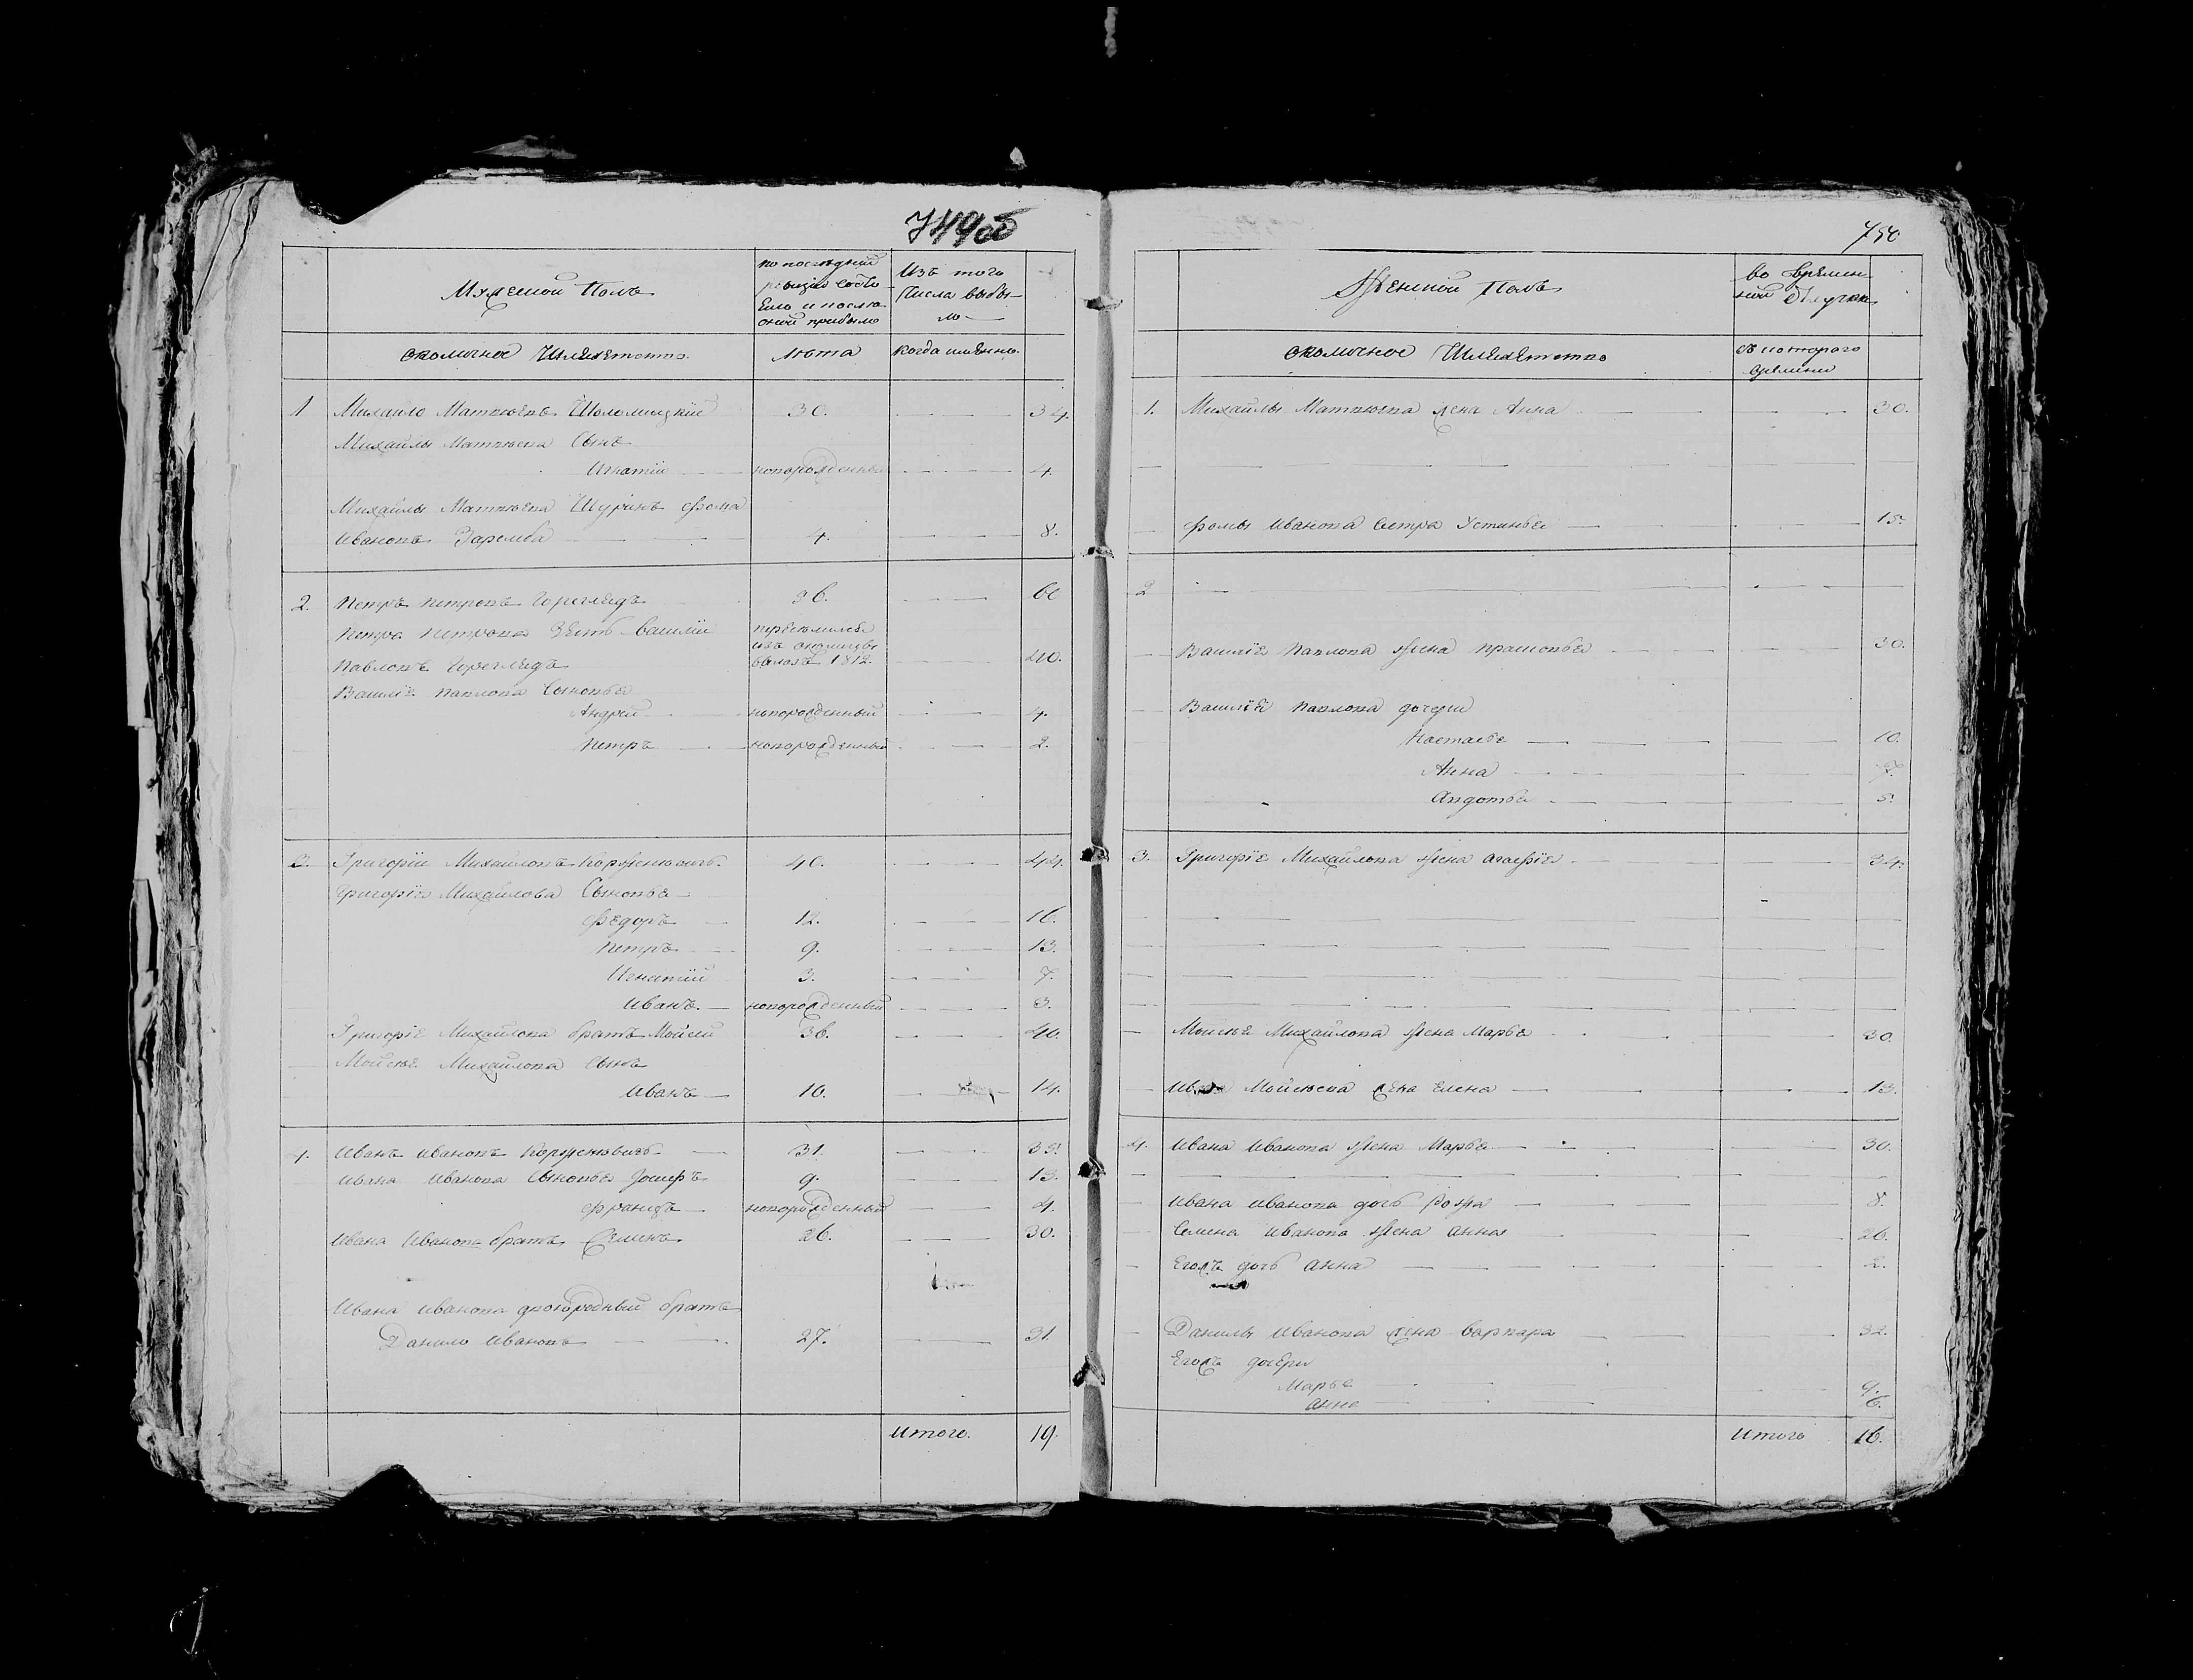 749об
Мужеской Полъ
по последней
ревизіи состо
яло и после
оной прибыло
Изъ того
Числа выбы-
ло
околичное Шляхетство
Лета
когда имянно
1 Михайло Матвеевъ Шоломицкій 30. 34.
Михайлы Матвеева Сынъ
Игнатій новорожденный 4.
Михайлы Матвеева Шуринъ Фома
Ивановъ Заремба 4. 8.
2. Петръ Петровъ Гореглядъ 36. 60
Петра Петрова Зять Василій
Павловъ Гореглядъ 40.
изъ околицы
1812.
Василія Павлова Сыновья
Андрей новорожденный 4.
Петръ новорожденный 2.
3. Григорій Михайловъ Корженевичъ 40. 44.
Григорія Михайлова Сыновья
Федоръ 12. 16.
Петръ 9. 13.
Игнатій 3. 7.
Иванъ новорожденный 3.
Григорія Михайлова братъ Мойсей 36. 40.
Мойсея Михайлова Сынъ
Иванъ 10. 14.
4. Иванъ Ивановъ Корженевичъ 31. 35.
Ивана Иванова Сыновья Іосифъ 9. 13.
Францъ новорожденный 4.
Ивана Иванова братъ Семенъ 26. 30.
Ивана Иванова двоюродный братъ
Данило Ивановъ 27. 31.
Итого. 19.
750
Женской Полъ
во времен
ной отлучке
околичное Шляхетство
съ которого
времени
1. Михайлы Матвеева жена Анна 30.
Фомы Иванова Сестра Устинья 15.
2
Василія Павлова жена Прасковья 30.
Василія Павлова дочери
Настасья 10.
Анна 7.
Авдотья 5.
3. Григорія Михайлова жена Агафія 34.
Мойсея Михайлова жена Марья 30.
Ивана Мойсеева жена Елена 13.
4. Ивана Иванова жена Марья 30.
Ивана Иванова дочь Рожа 8.
Семена Иванова жена Анна 26.
Егожъ дочь Анна 2.
Данилы Иванова жена Варвара 32.
Егожъ дочери
Марья 9.
Анна 6.
Итого 16.